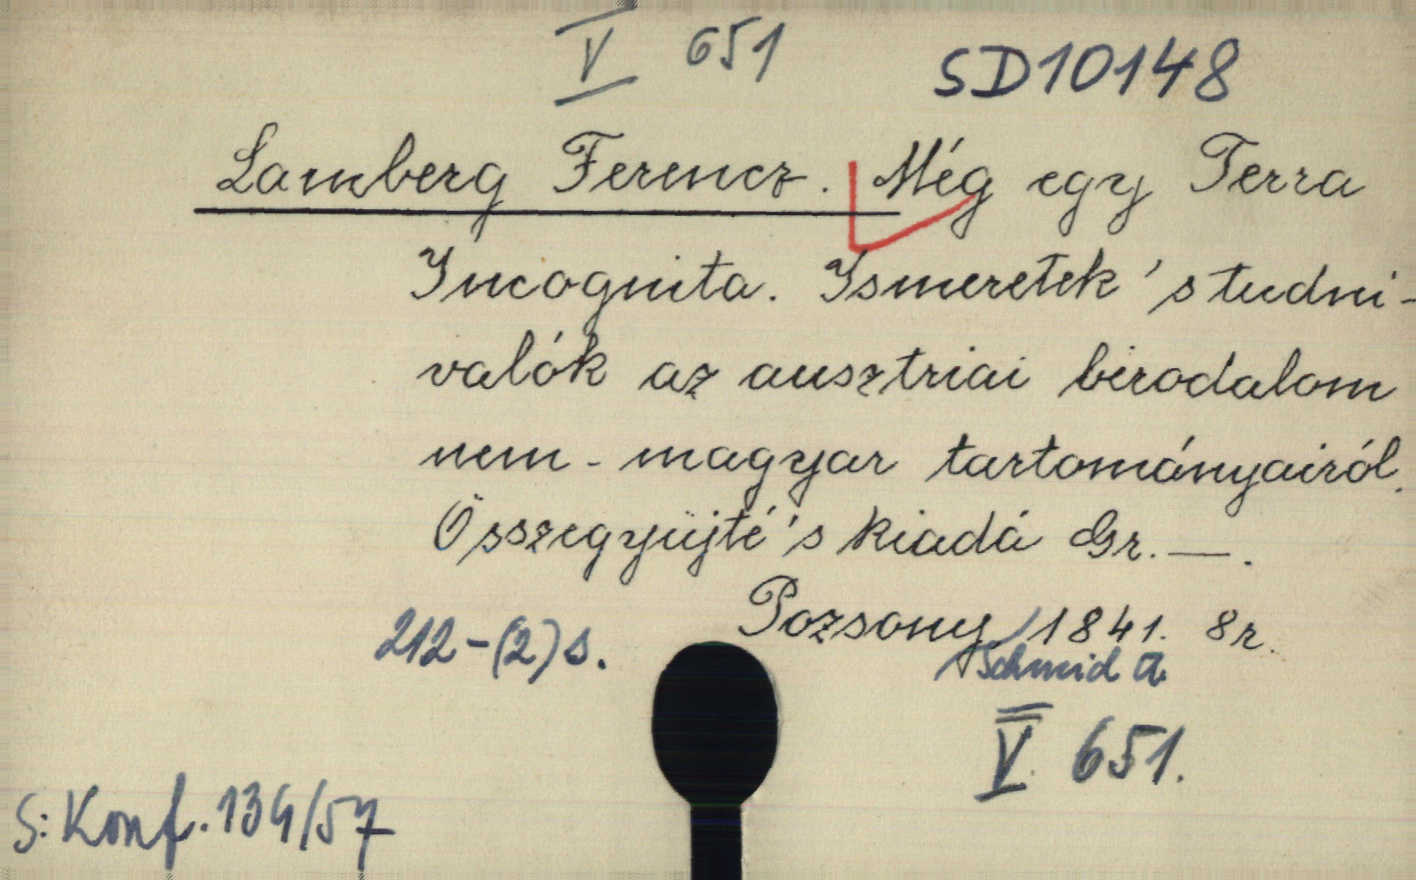 V 651
SD10148
Lamberg Ferencz. Még egy Terra
Incognita. Ismeretek 's tudni-
valók az ausztriai birodalom
nem-magyar tartományairól.
Összegyüjté 's kiadá Gr. —.
Pozsony, 1841. 8r.
212-(2) s.
Schmid A.
V. 651.
S: Konf. 134/57